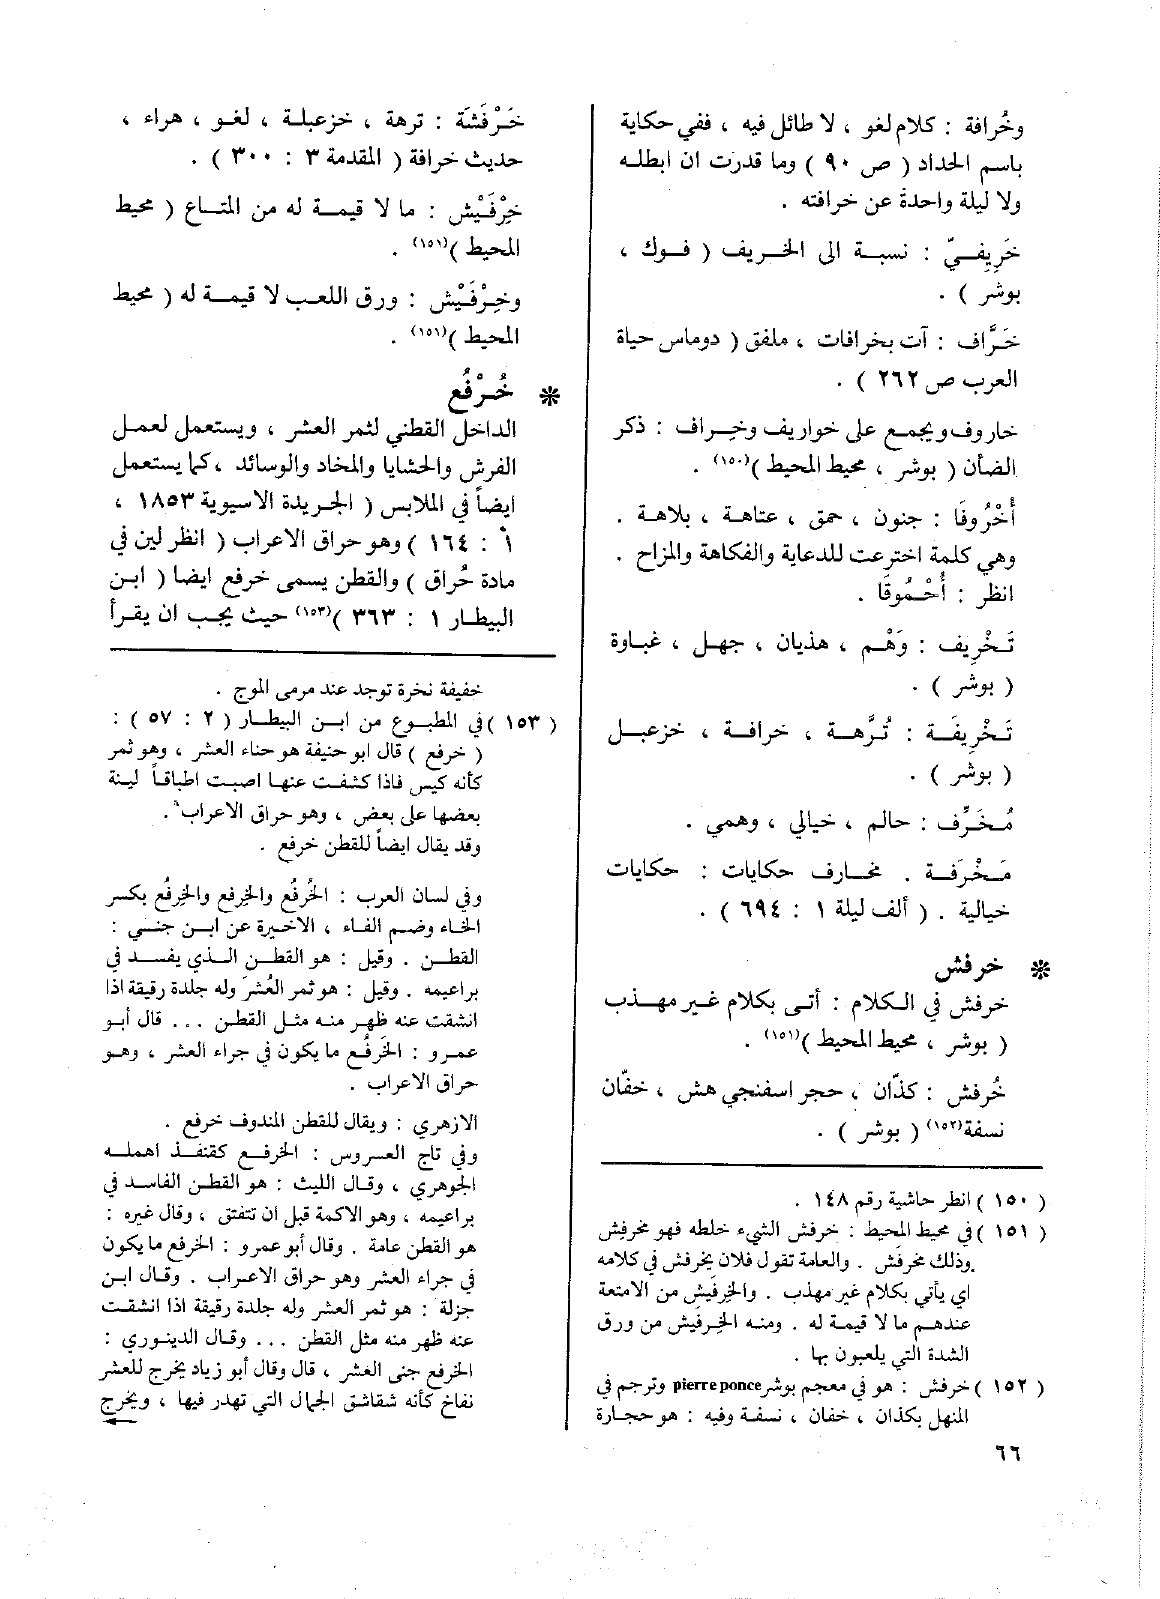 وخُرافة : كلام لغو ، لا طائل فيه ، ففي حكاية
باسم الحداد ( ص ٩٠ ) وما قدرت ان ابطله
ولا ليلة واحدة عن خرافته .
خَرِيفيّ : نسبة الى الخريف ( فوك ،
بوشر ) .
خَرَّاف : آت بخرافات ، ملفق ( دوماس حياة
العرب ص ٢٦٢ ) .
خاروف ويجمع على خواريف وخراف : ذكر
الضأن ( بوشر ، محيط المحيط )(١٥٠) .
أُخْرُوفَا : جنون ، حمق ، عتاهة ، بلاهة .
وهي كلمة اخترعت للدعابة والفكاهة والمزاح .
انظر : أُحْمُوقَا .
تَخْرِيف : وَهْم ، هذيان ، جهل ، غباوة
( بوشر ) .
تَخْرِيفَة : تُرَّهة ، خرافة ، خزعبل
( بوشر ) .
مُخَرِّف : حالم ، خيالي ، وهمي .
مَخْرَفة . مخارف حكايات : حكايات
خيالية . ( ألف ليلة ١ : ٦٩٤ ) .
* خرفش
خرفش في الكلام : أتى بكلام غير مهذب
( بوشر ، محيط المحيط )(١٥١) .
خُرفش : كذّان ، حجر اسفنجي هش ، خفّان
نسفة(١٥٢) ( بوشر ) .
( ١٥٠ ) انظر حاشية رقم ١٤٨ .
( ١٥١ ) في محيط المحيط : خرفش الشيء خلطه فهو مخرفِش
وذلك مخرفَش . والعامة تقول فلان يخرفش في كلامه
اي يأتي بكلام غير مهذب . والخِرفَيش من الامتعة
عندهم ما لا قيمة له . ومنه الخرفيش من ورق
الشدة التي يلعبون بها .
( ١٥٢ ) خرفش : هو في معجم بوشر pierre ponce وترجم في
المنهل بكذان ، خفان ، نسفة وفيه : هو حجارة
٦٦
خَرْفَشَة : ترهة ، خزعبلة ، لغو ، هراء ،
حديث خرافة ( المقدمة ٣ : ٣٠٠ ) .
خِرْفَيْش : ما لا قيمة له من المتاع ( محيط
المحيط )(١٥١) .
وخِرْفَيْش : ورق اللعب لا قيمة له ( محيط
المحيط )(١٥١) .
* خُرْفُع
الداخل القطني لثمر العشر ، ويستعمل لعمل
الفرش والحشايا والمخاد والوسائد ، كما يستعمل
ايضاً في الملابس ( الجريدة الاسيوية ١٨٥٣ ،
٦ : ١٦٤ ) وهو حراق الاعراب ( انظر لين في
مادة حُراق ) والقطن يسمى خرفع ايضا ( ابن
البيطار ١ : ٣٦٣ )(١٥٣) حيث يجب ان يقرأ
خفيفة نخرة توجد عند مرمى الموج .
( ١٥٣ ) في المطبوع من ابن البيطار ( ٢ : ٥٧ ) :
( خرفع ) قال ابو حنيفة هو حناء العشر ، وهو ثمر
كأنه كيس فاذا كشفت عنها اصبت اطباقاً لينة
بعضها على بعض ، وهو حراق الاعراب .
وقد يقال ايضاً للقطن خرفع .
وفي لسان العرب : الخُرفُع والخِرفِع والخِرفُع بكسر
الخاء وضم الفاء ، الاخيرة عن ابن جني :
القطن . وقيل : هو القطن الذي يفسد في
براعيمه . وقيل : هو ثمر العُشَر وله جلدة رقيقة اذا
انشقت عنه ظهر منه مثل القطن ... قال أبو
عمرو : الخَرفُع ما يكون في جراء العشر ، وهو
حراق الاعراب .
الازهري : ويقال للقطن المندوف خرفع .
وفي تاج العروس : الخرفع كقنفذ اهمله
الجوهري ، وقال الليث : هو القطن الفاسد في
براعيمه ، وهو الاكمة قبل ان تتفتق ، وقال غيره :
هو القطن عامة . وقال أبو عمرو : الخرفع ما يكون
في جراء العشر وهو حراق الاعراب . وقال ابن
جزلة : هو ثمر العشر وله جلدة رقيقة اذا انشقت
عنه ظهر منه مثل القطن ... وقال الدينوري :
الخرفع جنى العشر ، قال وقال أبو زياد يخرج للعشر
نفاخ كأنه شقاشق الجمال التي تهدر فيها ، ويخرج